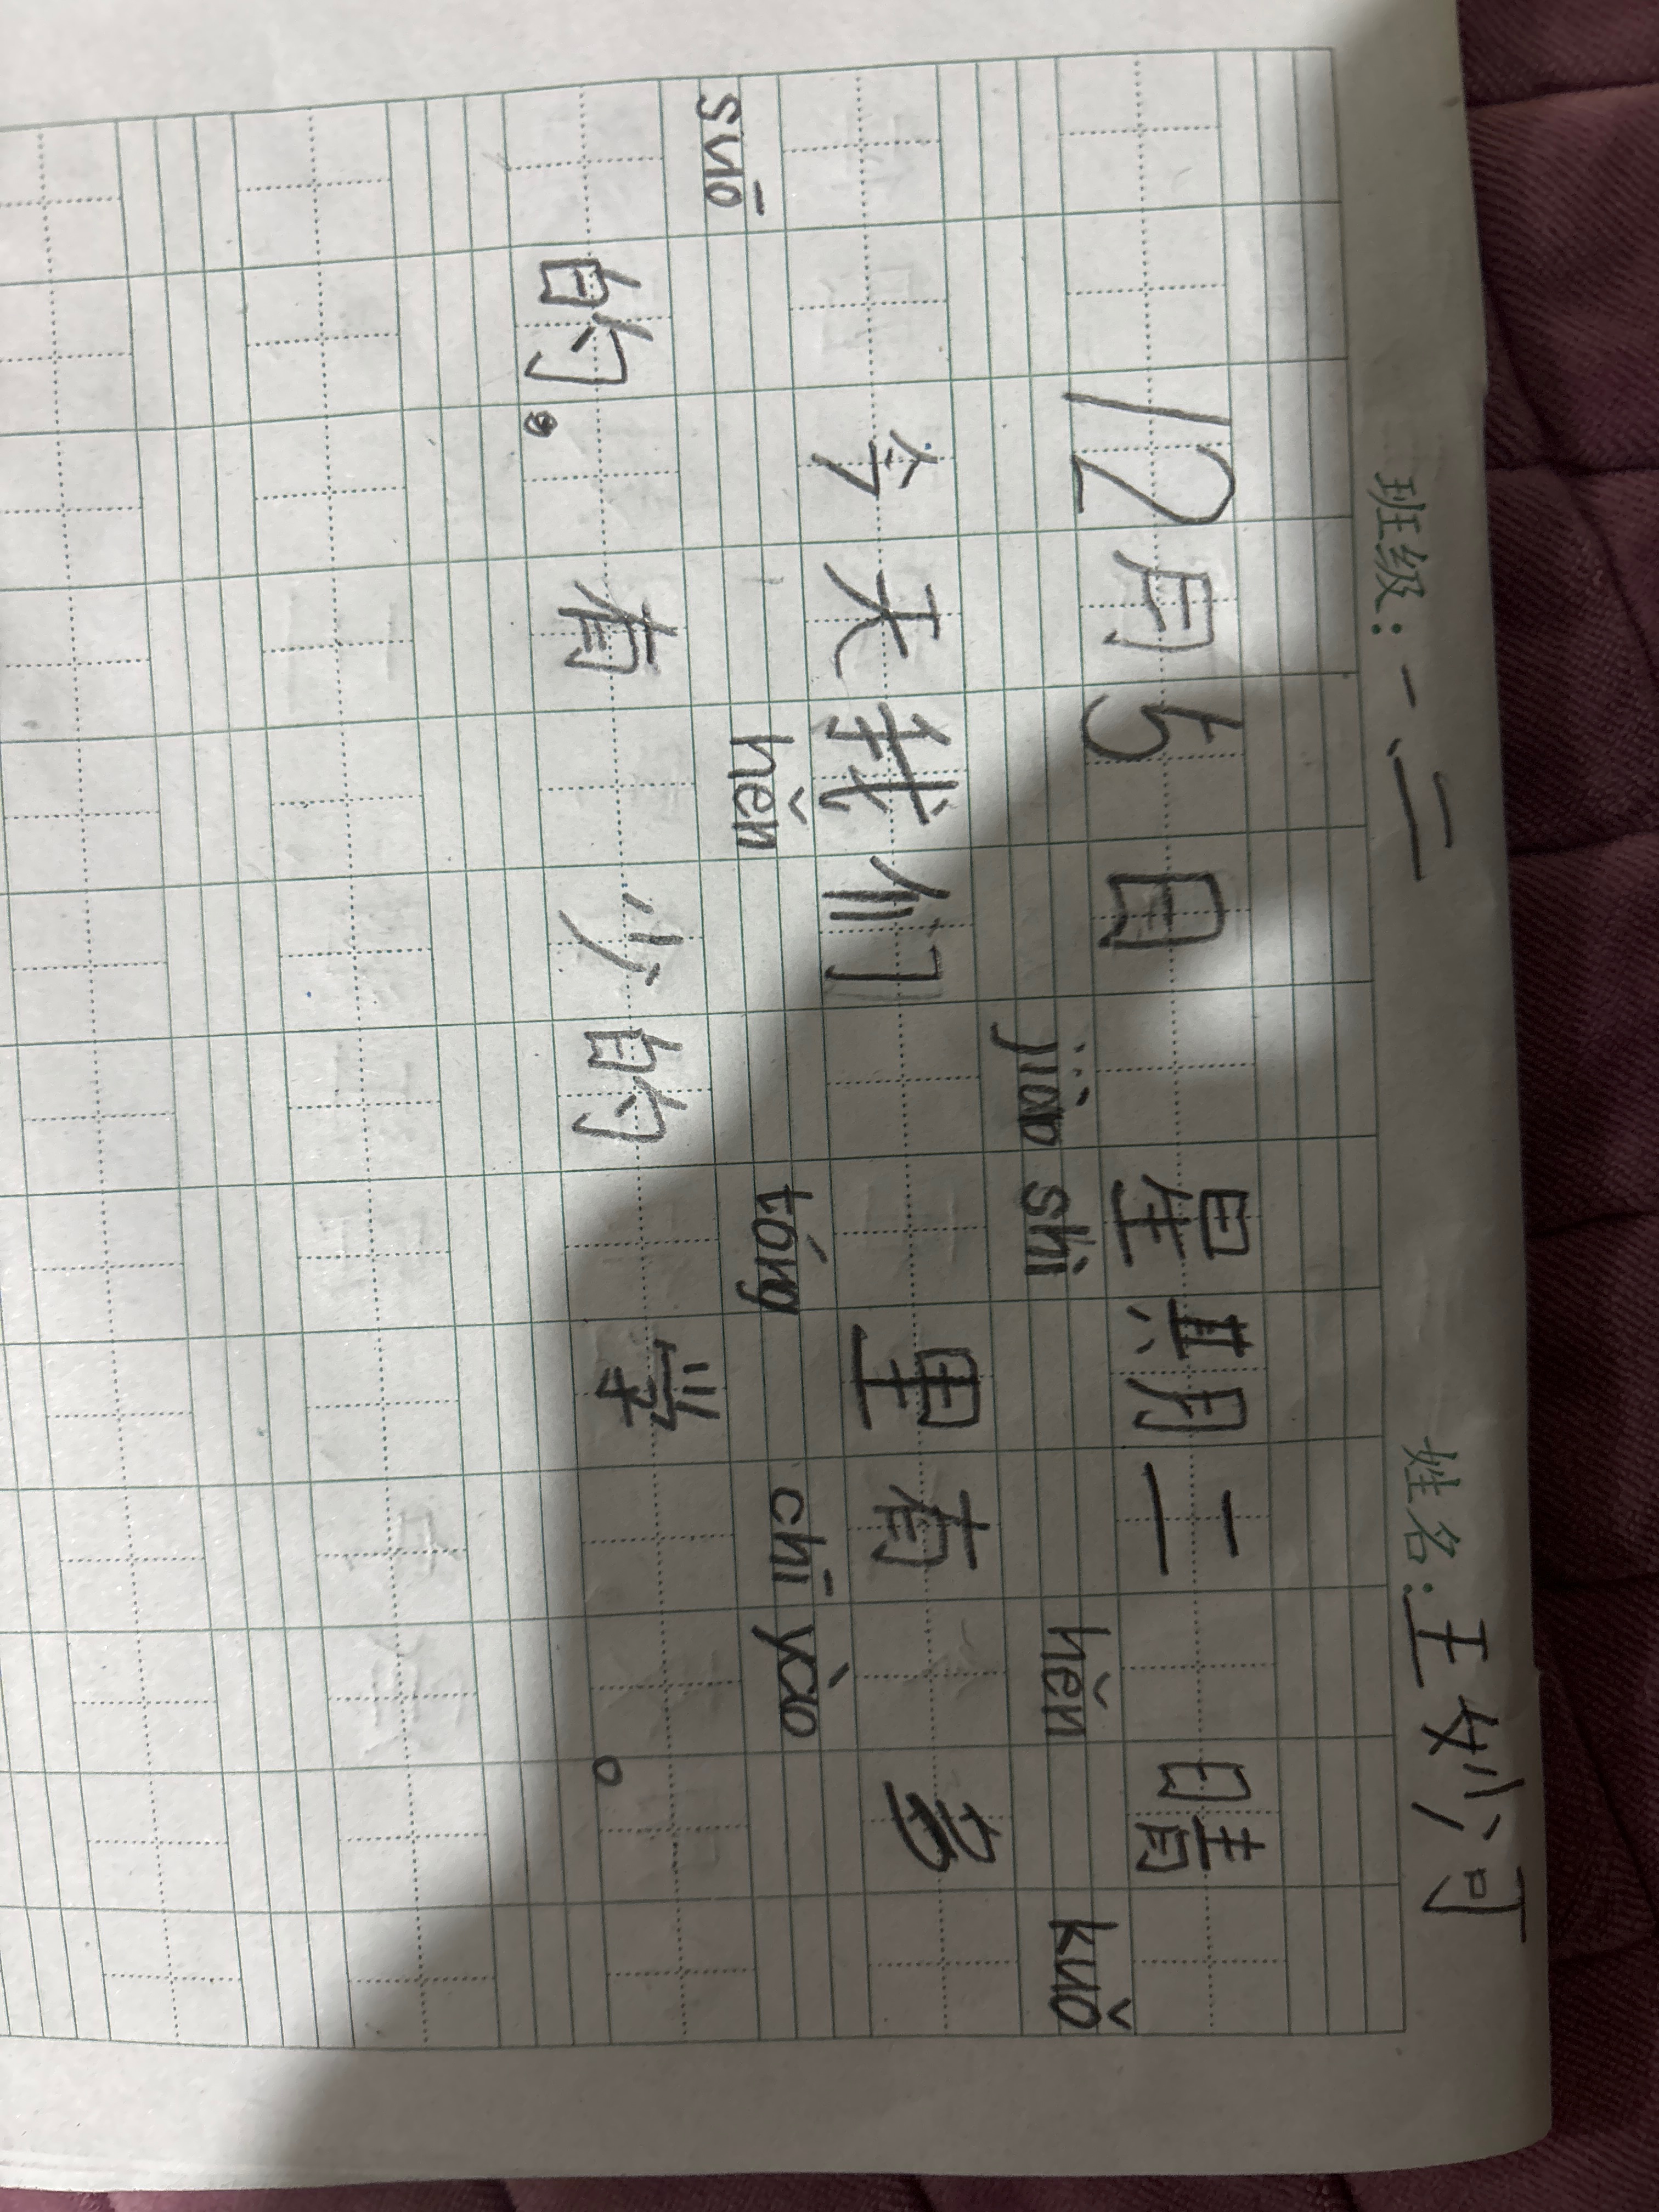 班级:一、二 姓名:王妙可
12月5日 星期二 晴
jiào shì hěn kuǒ
今天我们 里有 多
suō hěn tóng chī yào
的。有 少的 学 。